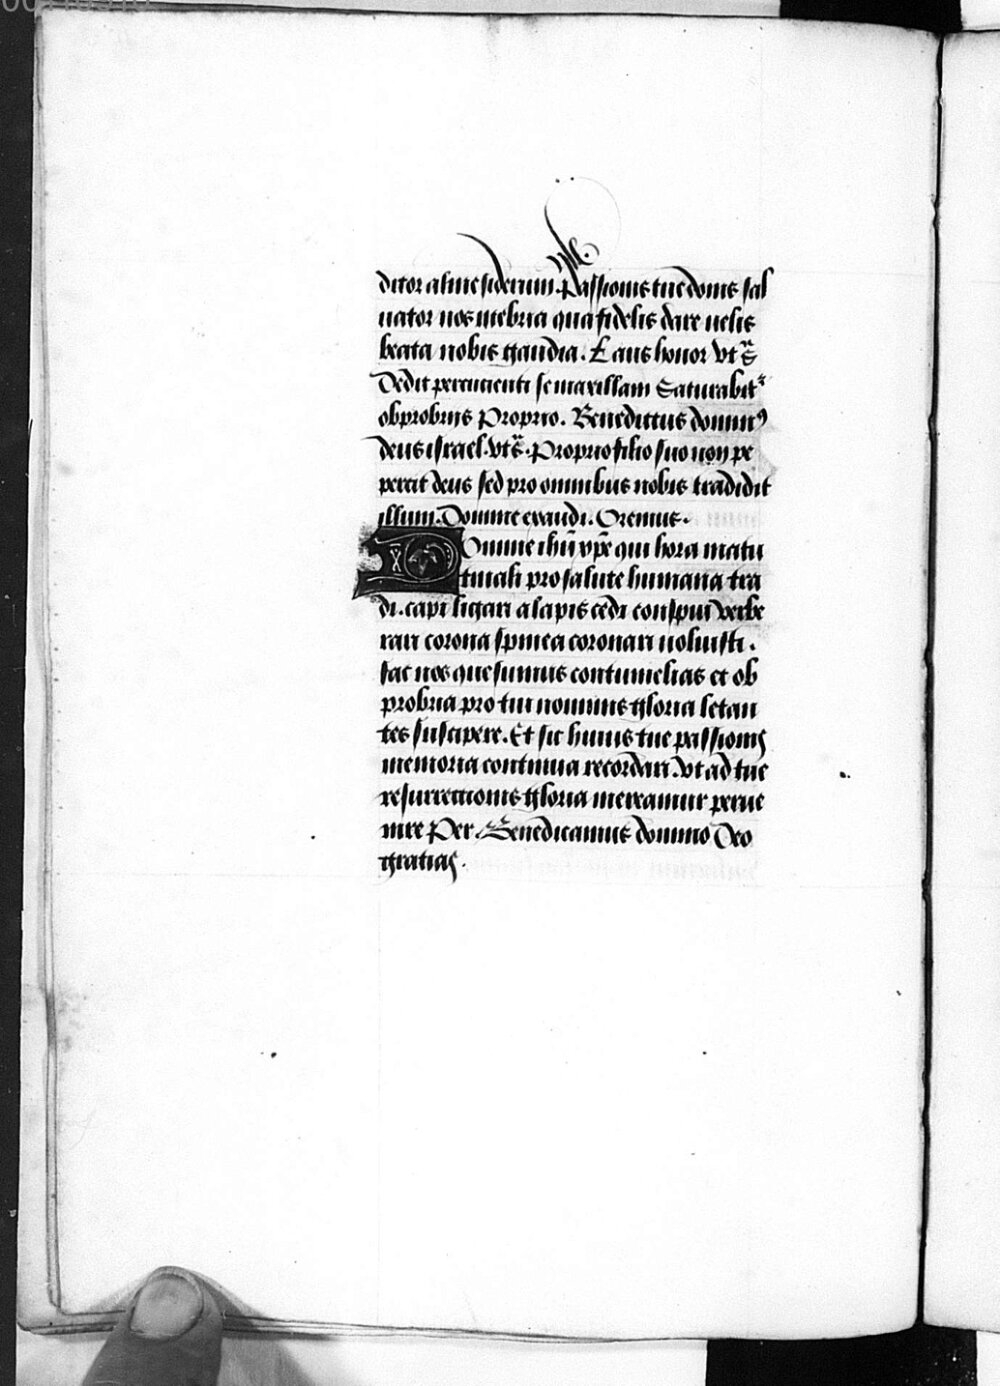 ym͂.
ditor alme siderum. Passionis tue donis sal
uator nos inebria qua fidelis dare uelis
beata nobis gaudia. Laus honor vt s̃
Dedit percucienti se maxillam Saturabit᷑
obprobrijs Proprio. Benedictus dominꝰ
deus israel. vt s̃. Proprio filio suo non pe
percit deus sed pro omnibus nobis tradidit
illum. Domine exaudi. Oremus.
Domine ihũ xp̃e qui hora matu
tinali pro salute humana tra
di. capi ligari alapis cedi conspui verbe
rari corona spinea coronari uoluisti.
fac nos quesumus contumelias et ob
probria pro tui nominis gloria letan
tes suscipere. Et sic huius tue passionis
memoria continua recordari. vt ad tue
resurrectionis gloria mereamur perue
nire Per. Benedicamus domino Deo
gratias.